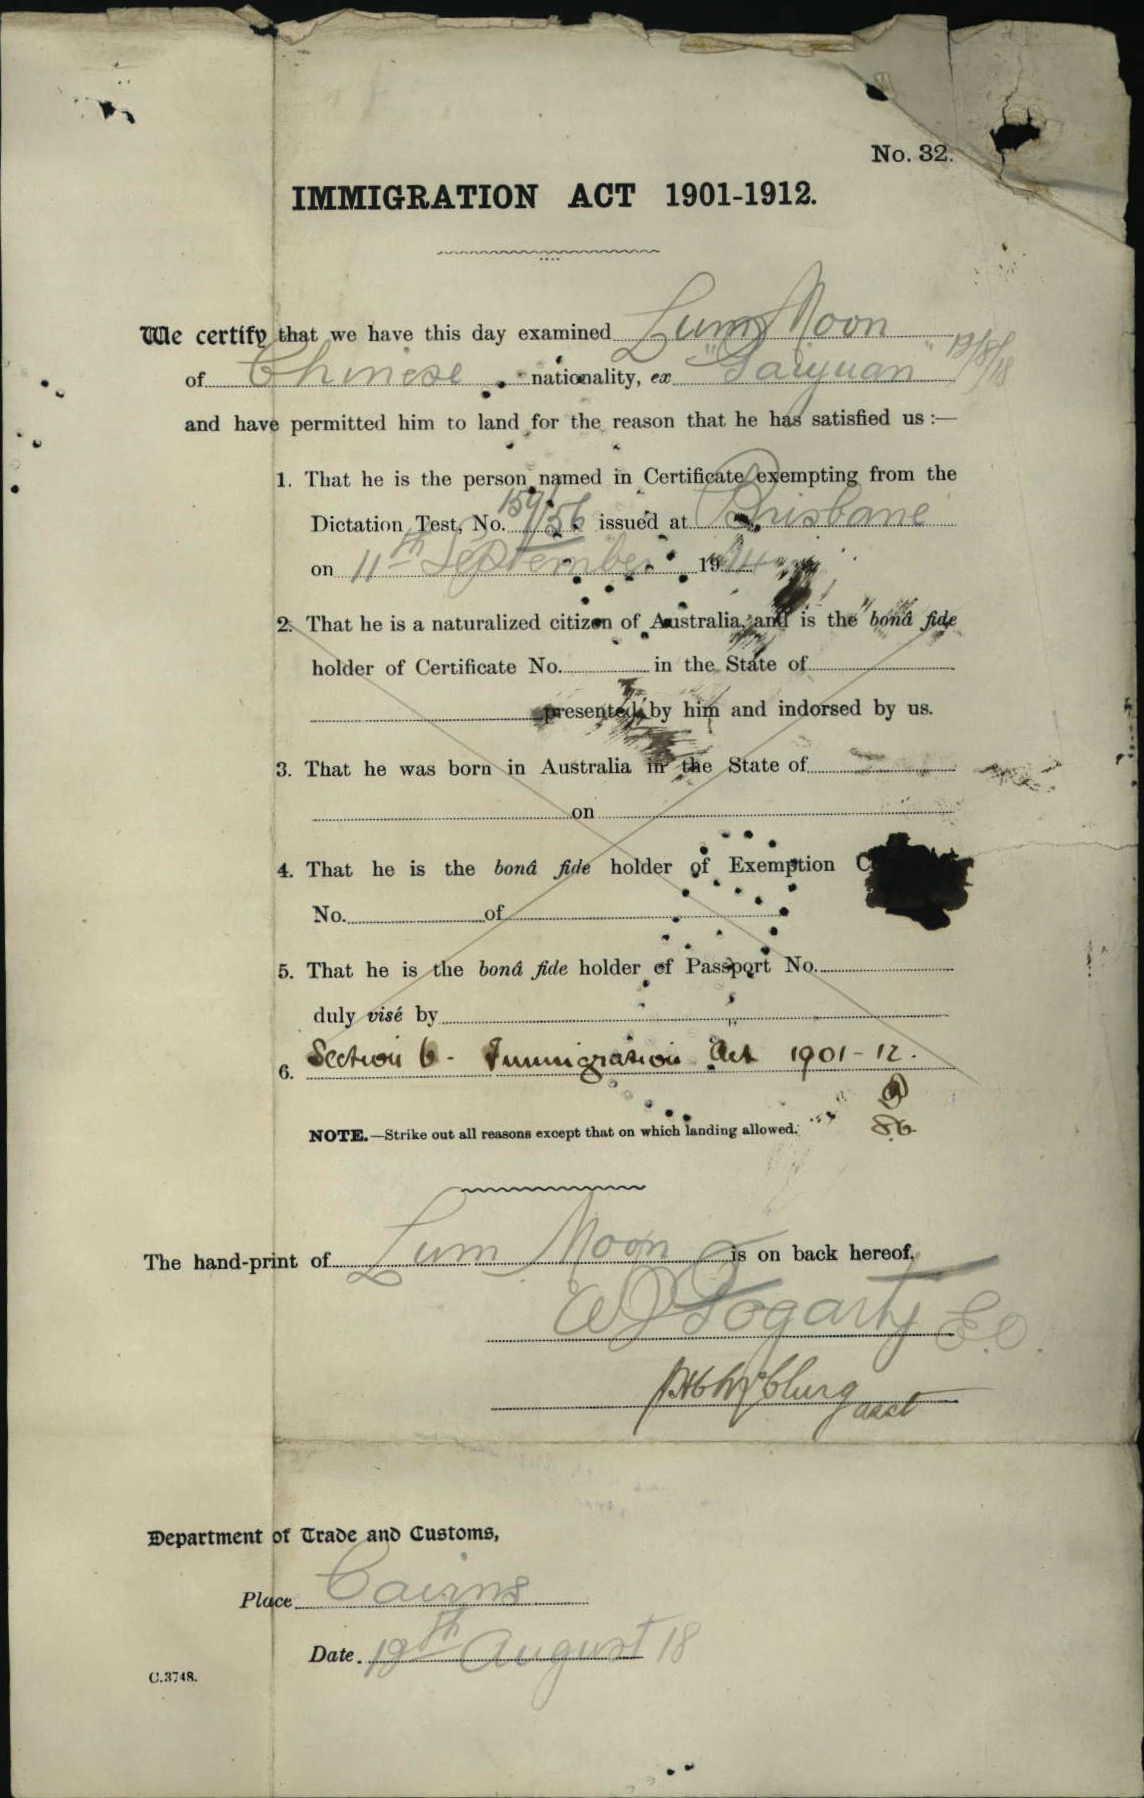 No. 32.
IMMIGRATION ACT 1901-1912.
We certify that we have this day examined Lum Moon
of Chinese nationality, ex "Taiyuan" 13/8/18
and have permitted him to land for the reason that he has satisfied us :—
1. That he is the person named in Certificate exempting from the
Dictation Test, No. 159/56 issued at Brisbane
on 11th September 1914
2. That he is a naturalized citizen of Australia, and is the bonâ fide
holder of Certificate No. in the State of
presented by him and indorsed by us.
3. That he was born in Australia in the State of
on
4. That he is the bonâ fide holder of Exemption
No. of
5. That he is the bonâ fide holder of Passport No.
duly visé by
6. Section 6 - Immigration Act 1901-12.
NOTE.—Strike out all reasons except that on which landing allowed.
The hand-print of Lum Moon is on back hereof.
WJ Fogarty E.O.
McClurg asst
Department of Trade and Customs,
Place Cairns
Date. 13th August 18
C.3748.